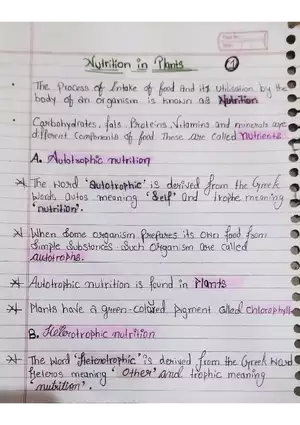 Nutrition in Plants
1
The Process of Intake of food and its utilisation by the
body of an organism is known as Nutrition
Carbohydrates, fats, Proteins, Vitamins and minerals are
different Components of food These are called nutrients
A. Autotrophic nutrition
The word 'autotrophic' is derived from the Greek
words autos meaning 'Self' and trophe meaning
'nutrition'.
When Some organism Prepares its own food from
Simple Substances Such organism are called
autotrophs.
Autotrophic nutrition is found in Plants
Plants have a green-coloured pigment called chlorophyll
B. Heterotrophic nutrition
The word 'Heterotrophic' is derived from the Greek word
Heteros meaning 'Other' and trophic meaning
'nutrition'.